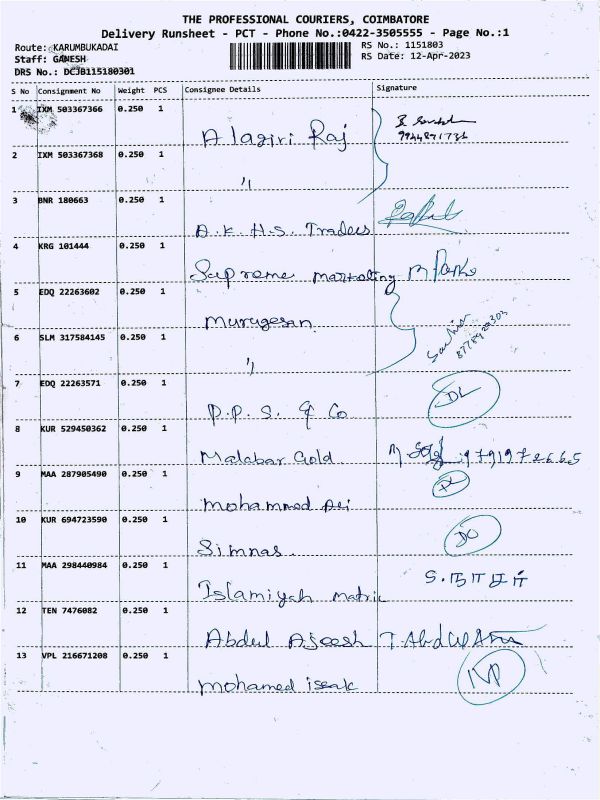 THE PROFESSIONAL COURIERS, COIMBATORE
Delivery Runsheet - PCT - Phone No.:0422-3505555 - Page No.:1
Route: KARUMBUKADAI
RS No.: 1151803
Staff: GANESH
RS Date: 12-Apr-2023
DRS No.: DCJB115180301
S No Consignment No Weight PCS Consignee Details Signature
1 IXM 503367366 0.250 1 Alagiri Raj
9944871736
2 IXM 503367368 0.250 1 〃
3 BNR 180663 0.250 1 A.K.H.S. Traders
4 KRG 101444 0.250 1 Supreme marketing
5 EDQ 22263602 0.250 1 Murugesan
6 SLM 317584145 0.250 1 〃
7 EDQ 22263571 0.250 1 P.P.S. & Co DL
8 KUR 529450362 0.250 1 Malabar Gold 9791972665
9 MAA 287905490 0.250 1 Mohammed Ali DL
10 KUR 694723590 0.250 1 Simnas.
11 MAA 298440984 0.250 1 Islamiyah matric
12 TEN 7476082 0.250 1 Abdul Ajeesh
13 VPL 216671208 0.250 1 Mohamed issak